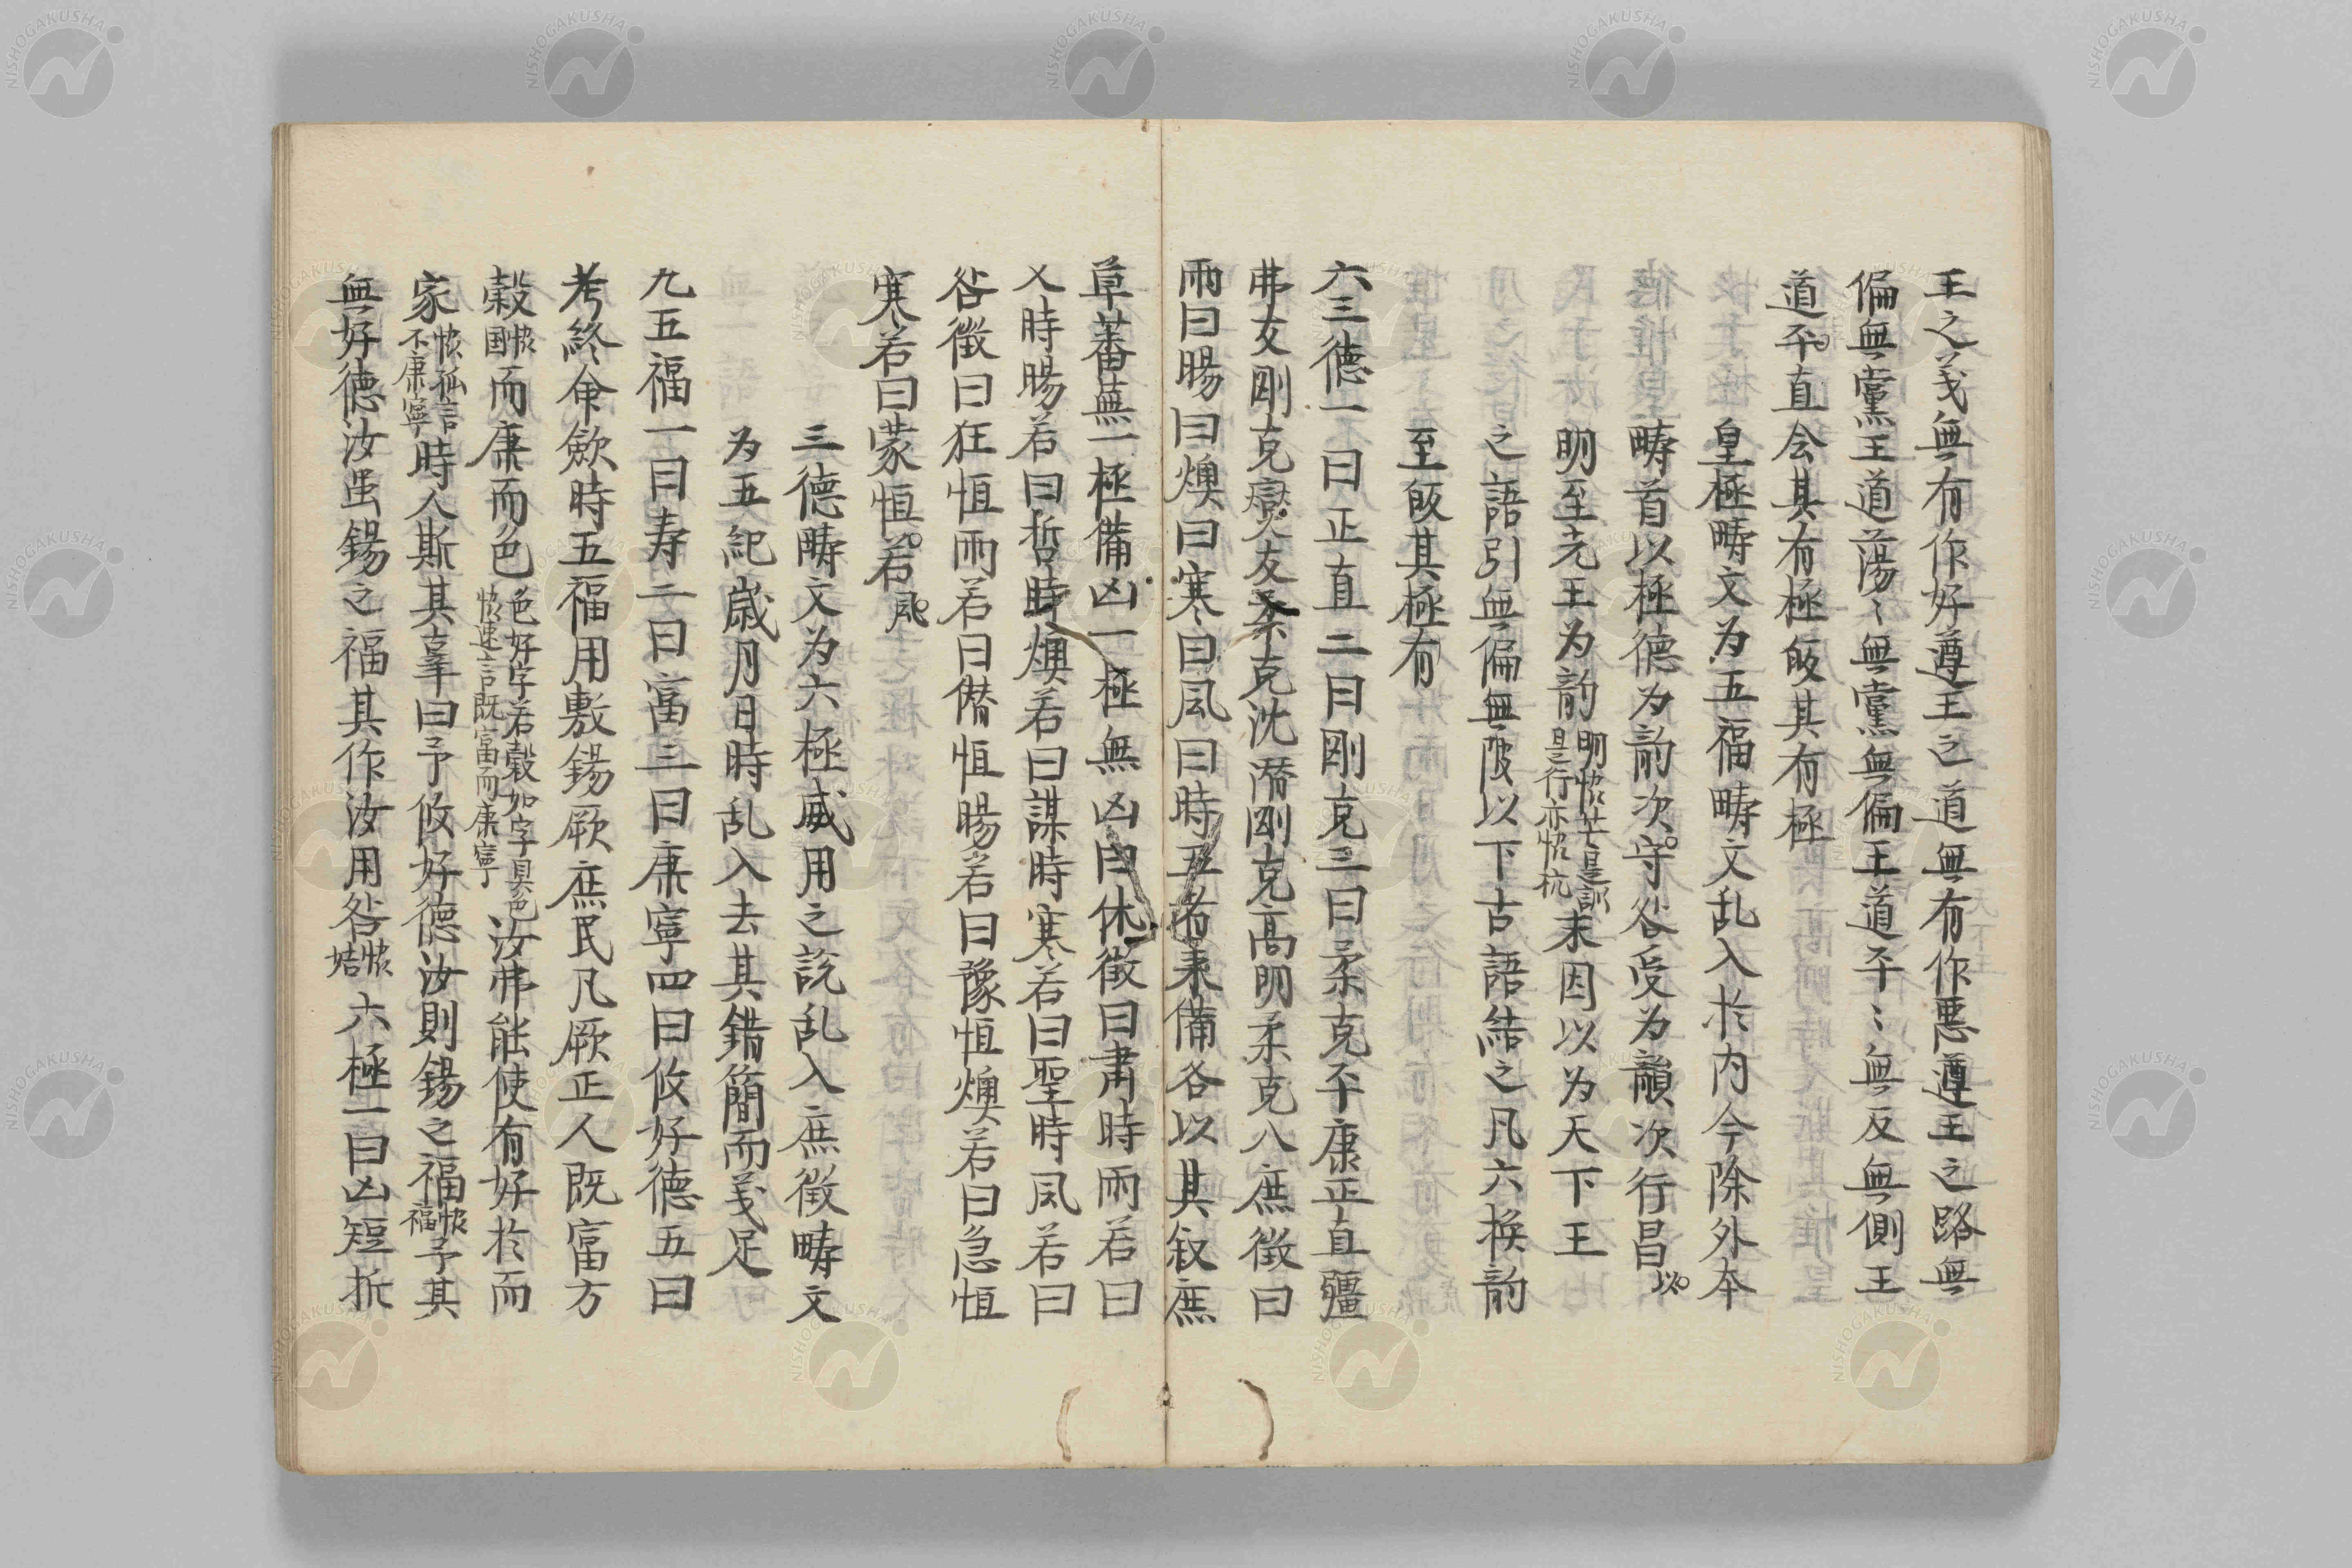 王之義無有作好遵王之道無有作悪遵王之路無
偏無黨王道蕩〻無黨無偏王道平〻無反無側王
道平直会其有極皈其有極
皇極疇文为五福疇文乱入於内今除外本
疇首以極德为韵次守咎受为韻次行昌以
明至光王为韵明恢芒是訓是行亦恢杭末因以为天下王
之語引無偏無陂以下古語結之凡六換韵
至皈其極有
六三德一曰正直二曰剛克三曰柔克平康正直彊
弗友剛克燮友柔克沈潛剛克高明柔克八庶徴曰
雨曰暘曰燠曰寒曰風曰時五者来備各以其叙庶
草蕃蕪一極備凶一極無凶曰休徴曰肅時雨若曰
乂時暘若曰哲時燠若曰謀時寒若曰聖時風若曰
咎徴曰狂恒雨若曰僭恒暘若曰豫恒燠若曰急恒
寒若曰蒙恒若風
三德疇文为六極威用之說乱入庶徴疇文
为五紀歳月日時乱入去其錯簡而義足
九五福一曰寿二曰富三曰康寧四曰攸好德五曰
考終命歛時五福用敷錫厥庶民凡厥正人既富方
穀恢国而康而色色好字若穀如字具色恢速言既富而康寧汝弗能使有好於而
家恢孤言不康寧時人斯其辜曰予攸好德汝則錫之福恢福予其
無好德汝虽錫之福其作汝用咎恢姞六極一曰凶短折